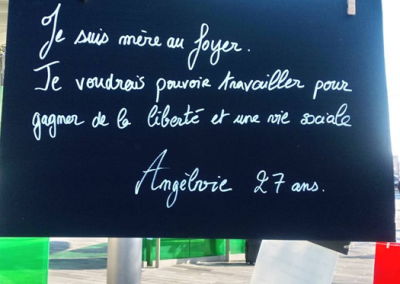 Je suis mère au foyer.
Je voudrais pouvoir travailler pour
gagner de la liberté et une vie sociale
Angèlvie 27 ans.